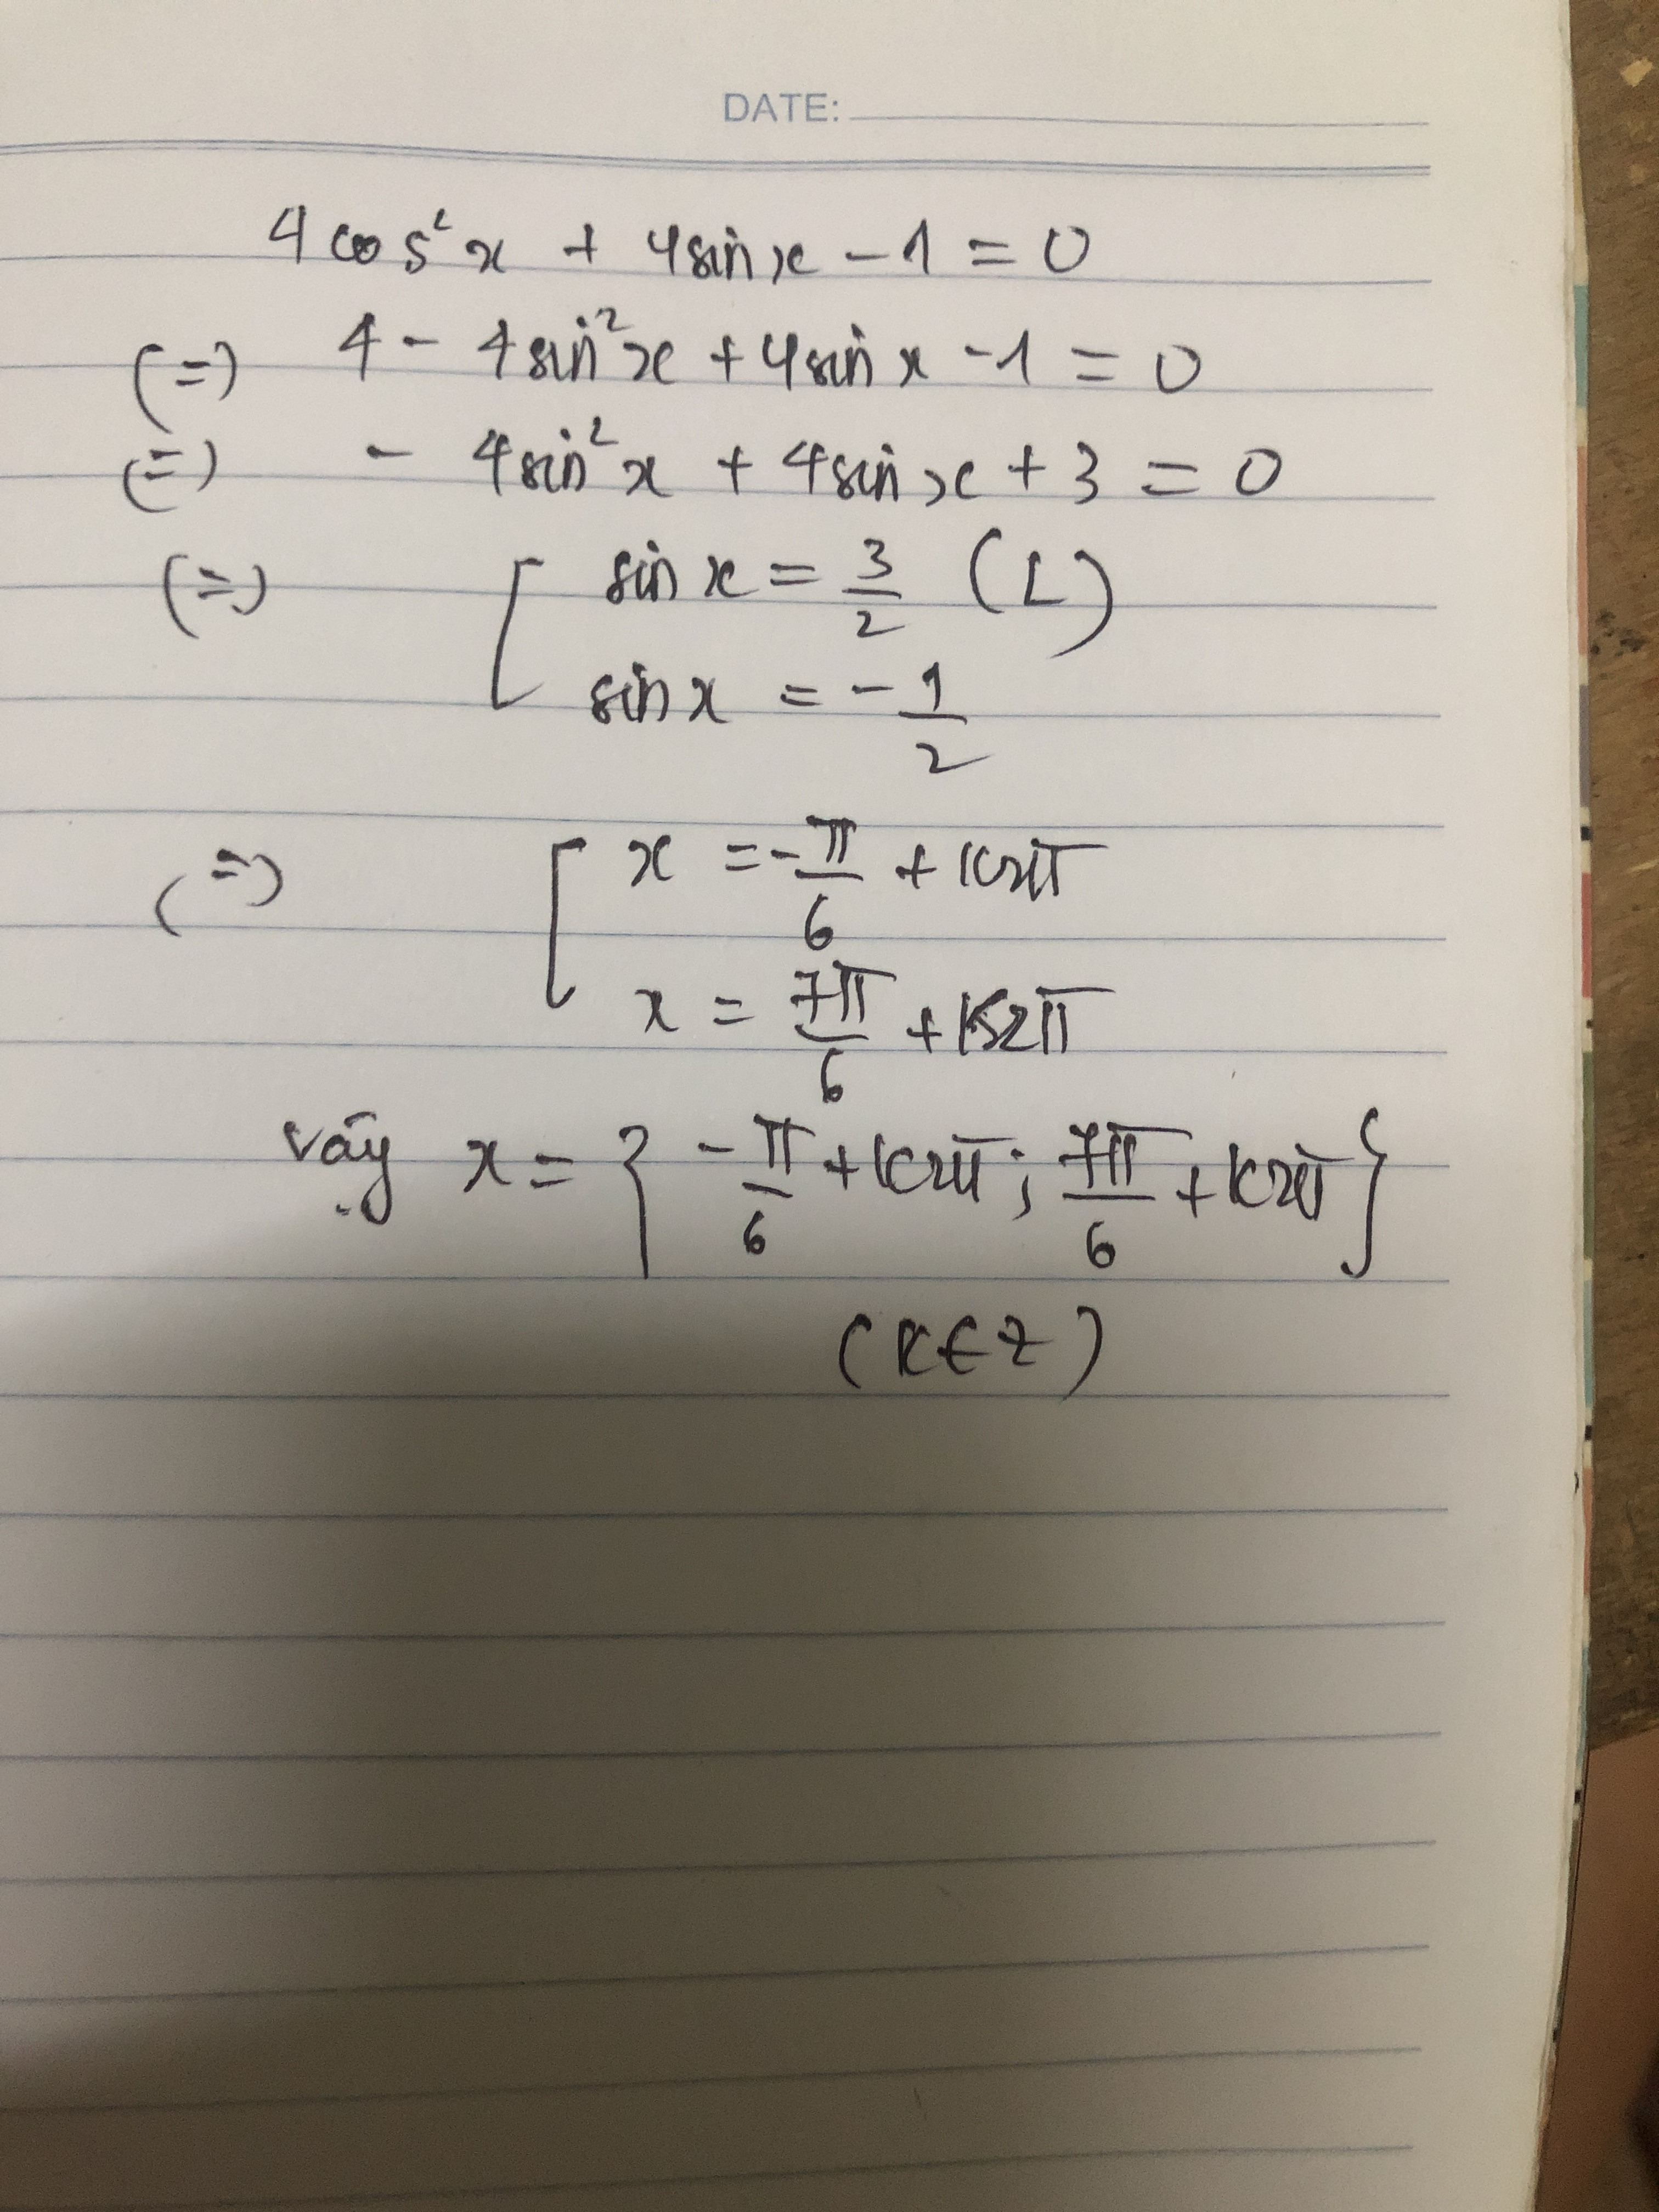 DATE:
4cos²x + 4sinx - 1 = 0
(=) 4 - 4sin²x + 4sinx - 1 = 0
(=) - 4sin²x + 4sinx + 3 = 0
(=) [ sinx = 3/2 (L)
sinx = - 1/2
(=) [ x = - π/6 + k2π
x = 7π/6 + k2π
vậy x = { - π/6 + k2π ; 7π/6 + k2π }
(k ∈ Z)